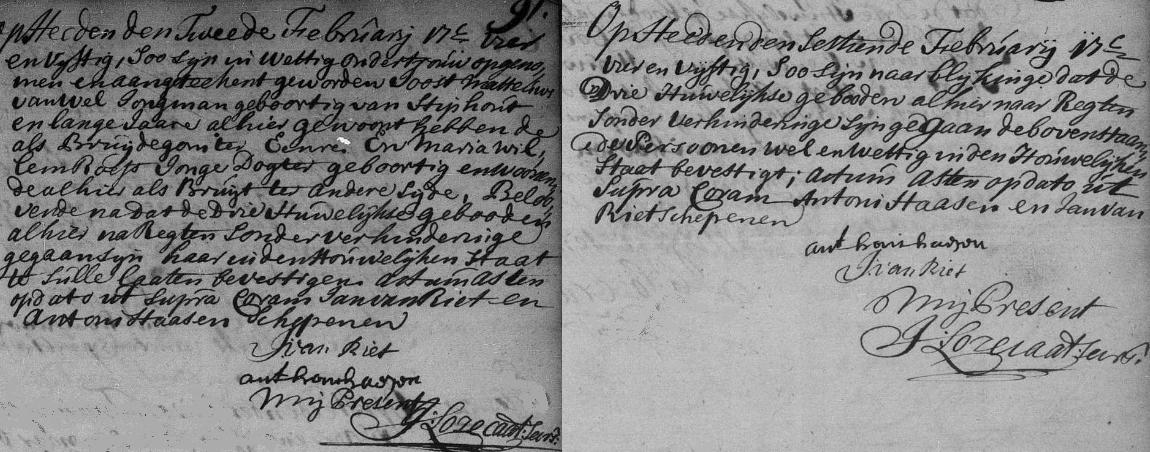 91.
Op Heeden den Tweede Februarij 17c vier
en vijftig, Soo Sijn in wettig ondertrouw opgeno,
men en aangeteekent geworden Joost Mattheeus
van Wel Jongman geboortig van Stiphout
en lange Jaare alhier gewoont hebbende
als Bruijdegom ter Eenre En Maria Wil,
lem Roefs Jonge Dogter geboortig en woonen,
de alhier als Bruijt ter andere Syde, Belo,
vende na dat de Drie Huwelijkse geboodens
alhier na Regten Sonder verhinderinge
gegaan Sijn haar in den Houwelijken Staat
te Sulle Laaten bevestigen. Actum Asten
op dato ut Supra Coram Jan van Riet en
Antoni Haasen Schepenen
J van Riet
anthoni haasen
Mij Present
J. Losecaat: Secrs.
Op Heeden den Sestiende Februarij 17c
vier en vijftig, Soo Sijn naar blijkinge dat de
Drie Huwelijkse gebooden alhier naar Regten
Sonder verhinderinge Sijn gegaan de bovenstaan,
de Persoonen wel en Wettig in den Houwelijken
Staat bevestigt; Actum Asten op dato ut
Supra Coram Antoni Haasen en Jan van
Riet Schepenen
anthoni haasen
J van Riet
Mij Present
J. Losecaat: Secrs.